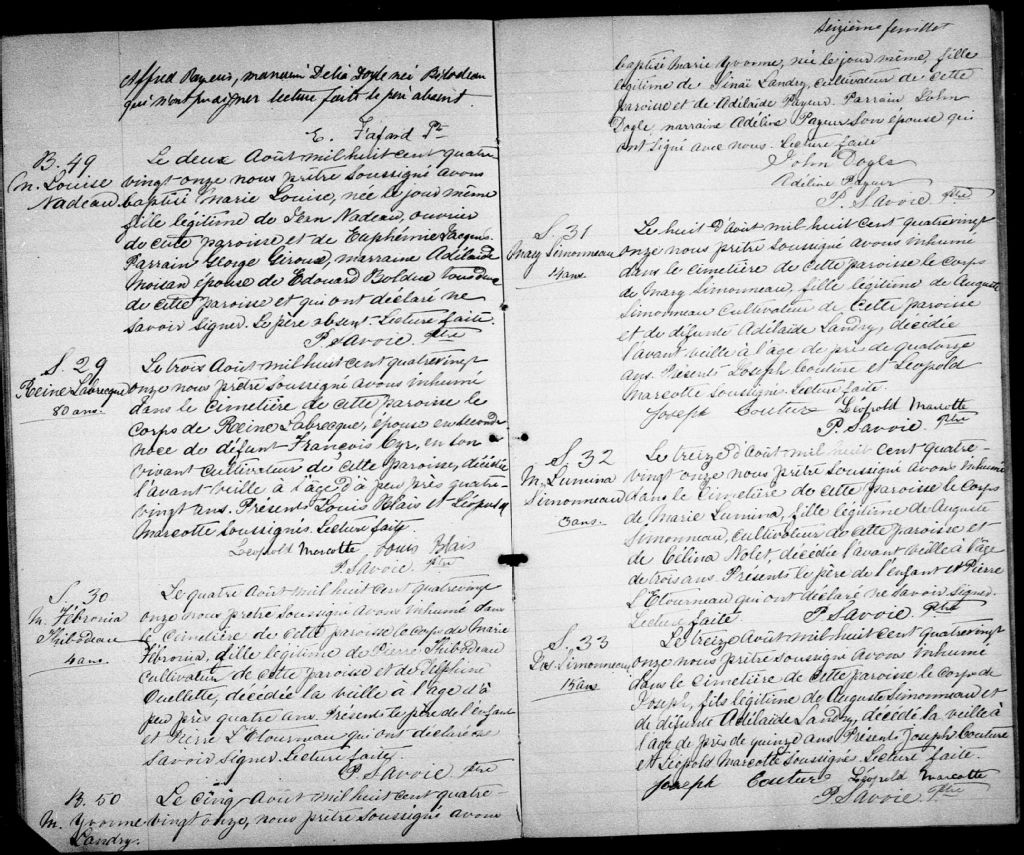 Alfred Payeur, marraine Délia Doyle née Bilodeau
qui n'ont pu signer lecture faite le père absent.
E. Fafard Ptr
B. 49
M. Louise
Nadeau
Le deux Août mil huit cent quatre
vingt onze nous prêtre soussigné avons
baptisé Marie Louise, née le jour même
fille légitime de Jean Nadeau, ouvrier
de cette paroisse et de Euphémie Jacques
Parrain George Giroux, marraine Adélaïde
Moisan épouse de Edouard Bolduc
de cette paroisse et qui ont déclaré ne
savoir signer. Le père absent. Lecture faite.
P. Savoie Ptre
S. 29
Reine Labrecque
80 ans.
Le trois Août mil huit cent quatrevingt
onze nous prêtre soussigné avons inhumé
dans le cimetière de cette paroisse le
corps de Reine Labrecque, épouse en seconde
noce de défunt François Cyr, en son
vivant cultivateur de cette paroisse, décédée
l'avant veille à l'âge d'à peu près quatre-
vingt ans. Présents Louis Blais et Léopold
Marcotte soussignés. Lecture faite
Léopold Marcotte, Louis Blais
P. Savoie Ptre
S. 30
M. Fébronia
Thibodeau
4 ans.
Le quatre Août mil huit cent quatrevingt
onze nous prêtre soussigné avons inhumé dans
le cimetière de cette paroisse le corps de Marie
Fébronia, fille légitime de Pierre Thibodeau
cultivateur de cette paroisse et de Delphine
Ouellette, décédée la veille à l'âge d'à
peu près quatre ans. Présents le père de l'enfant
et Pierre L'Etourneau qui ont déclaré ne
savoir signer. Lecture faite.
P. Savoie Ptre
B. 50
M. Yvonne
Landry.
Le cinq Août mil huit cent quatre-
vingt onze, nous prêtre soussigné avons
Seizième feuillet
baptisé Marie Yvonne, née le jour même, fille
légitime de Sinaï Landry, cultivateur de cette
paroisse et de Adélaïde Payeur. Parrain John
Doyle, marraine Adéline Payeur son épouse qui
ont signé avec nous. Lecture faite
John Doyle
Adéline Payeur
P. Savoie Ptre
S. 31
Mary Simonneau
14 ans
Le huit d'Août mil huit cent quatrevingt
onze nous prêtre soussigné avons inhumé
dans le cimetière de cette paroisse le corps
de Mary Simonneau, fille légitime de Auguste
Simonneau cultivateur de cette paroisse
et de défunte Adélaïde Landry, décédée
l'avant veille à l'âge de près de quatorze
ans. Présents Joseph Couture et Léopold
Marcotte soussigné. Lecture faite.
Joseph Couture Léopold Marcotte
P. Savoie. Ptre
S. 32
M. Lumina
Simonneau
3 ans.
Le treize d'Août mil huit cent quatre-
vingt onze nous prêtre soussigné avons inhumé
dans le cimetière de cette paroisse le corps
de Marie Lumina, fille légitime de Auguste
Simonneau, cultivateur de cette paroisse et
de Célina Nolet décédée l'avant veille à l'âge
de trois ans. Présents le père de l'enfant et Pierre
L'Etourneau qui ont déclaré ne savoir signer.
Lecture faite. P. Savoie. Ptre
S. 33
Jos. Simonneau
15 ans
Le treize Août mil huit cent quatrevingt
onze nous prêtre soussigné avons inhumé
dans le cimetière de cette paroisse le corps de
Joseph, fils légitime de Auguste Simonneau et
de défunte Adélaïde Landry, décédé la veille à
l'âge de près de quinze ans Présents Joseph Couture
et Léopold Marcotte soussignés Lecture faite.
Joseph Couture Léopold Marcotte
P. Savoie. Ptre